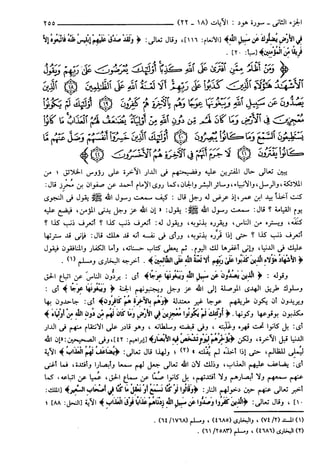 الجزء الثاني - سورة هود : الآيات (١٨ - ٢٢)
٢٥٥
في الأرض يضلوك عن سبيل الله﴾ [الأنعام: ١١٦]، وقال تعالى: ﴿ولقد صدق عليهم إبليس ظنه فاتبعوه إلا
فريقا من المؤمنين﴾ [سبأ: ٢٠].
﴿ومن أظلم ممن افترى على الله كذبا أولئك يعرضون على ربهم ويقول
الأشهاد هؤلاء الذين كذبوا على ربهم ألا لعنة الله على الظالمين الذين
يصدون عن سبيل الله ويبغونها عوجا وهم بالآخرة هم كافرون أولئك لم يكونوا
معجزين في الأرض وما كان لهم من دون الله من أولياء يضاعف لهم العذاب ما كانوا
يستطيعون السمع وما كانوا يبصرون أولئك الذين خسروا أنفسهم وضل عنهم ما
كانوا يفترون لا جرم أنهم في الآخرة هم الأخسرون﴾
يبين تعالى حال المفترين عليه وفضيحتهم في الدار الآخرة على رؤوس الخلائق ؛ من
الملائكة، والرسل، والأنبياء، وسائر البشر والجان، كما روى الإمام أحمد عن صفوان بن محرز قال:
كنت آخذا بيد ابن عمر، إذ عرض له رجل قال : كيف سمعت رسول الله ﷺ يقول في النجوى
يوم القيامة ؟ قال: سمعت رسول الله ﷺ يقول: «إن الله عز وجل يدني المؤمن، فيضع عليه
كنفه، ويستره من الناس، ويقرره بذنوبه، ويقول له: أتعرف ذنب كذا ؟ أتعرف ذنب كذا ؟
أتعرف ذنب كذا ؟ حتى إذا قرره بذنوبه، ورأى في نفسه أنه قد هلك قال: فإني قد سترتها
عليك في الدنيا، وإني أغفرها لك اليوم. ثم يعطى كتاب حسناته، وأما الكفار والمنافقون فيقول
﴿الأشهاد هؤلاء الذين كذبوا على ربهم ألا لعنة الله على الظالمين﴾ . أخرجه البخاري ومسلم (١) .
وقوله : ﴿الذين يصدون عن سبيل الله ويبغونها عوجا﴾ أي : يردون الناس عن اتباع الحق
وسلوك طريق الهدى الموصلة إلى الله عز وجل ويجنبونهم الجنة ﴿ويبغونها عوجا﴾ أي :
ويريدون أن يكون طريقهم عوجا غير معتدلة ﴿وهم بالآخرة هم كافرون﴾ أي: جاحدون بها
مكذبون بوقوعها وكونها. ﴿أولئك لم يكونوا معجزين في الأرض وما كان لهم من دون الله من أولياء﴾
أي: بل كانوا تحت قهره وغلبته ، وفي قبضته وسلطانه ، وهو قادر على الانتقام منهم في الدار
الدنيا قبل الآخرة، ولكن ﴿يؤخرهم ليوم تشخص فيه الأبصار﴾ [إبراهيم: ٤٢]، وفي الصحيحين: «إن الله
ليملي للظالم، حتى إذا أخذه لم يفلته » (٢) ؛ ولهذا قال تعالى: ﴿يضاعف لهم العذاب﴾ الآية
أي: يضاعف عليهم العذاب، وذلك لأن الله تعالى جعل لهم سمعا وأبصارا وأفئدة، فما أغنى
عنهم سمعهم ولا أبصارهم ولا أفئدتهم، بل كانوا صما عن سماع الحق، عميا عن اتباعه، كما
أخبر تعالى عنهم حين دخولهم النار: ﴿وقالوا لو كنا نسمع أو نعقل ما كنا في أصحاب السعير﴾ [الملك:
١٠] ، وقال تعالى: ﴿الذين كفروا وصدوا عن سبيل الله زدناهم عذابا فوق العذاب﴾ الآية [النحل: ٨٨] ؛
(١) المسند (٧٤/٢)، والبخاري (٤٦٨٥)، ومسلم (٦٤/١٧٦٨).
(٢) البخاري (٤٦٨٦)، ومسلم (٦١/٢٥٨٣).